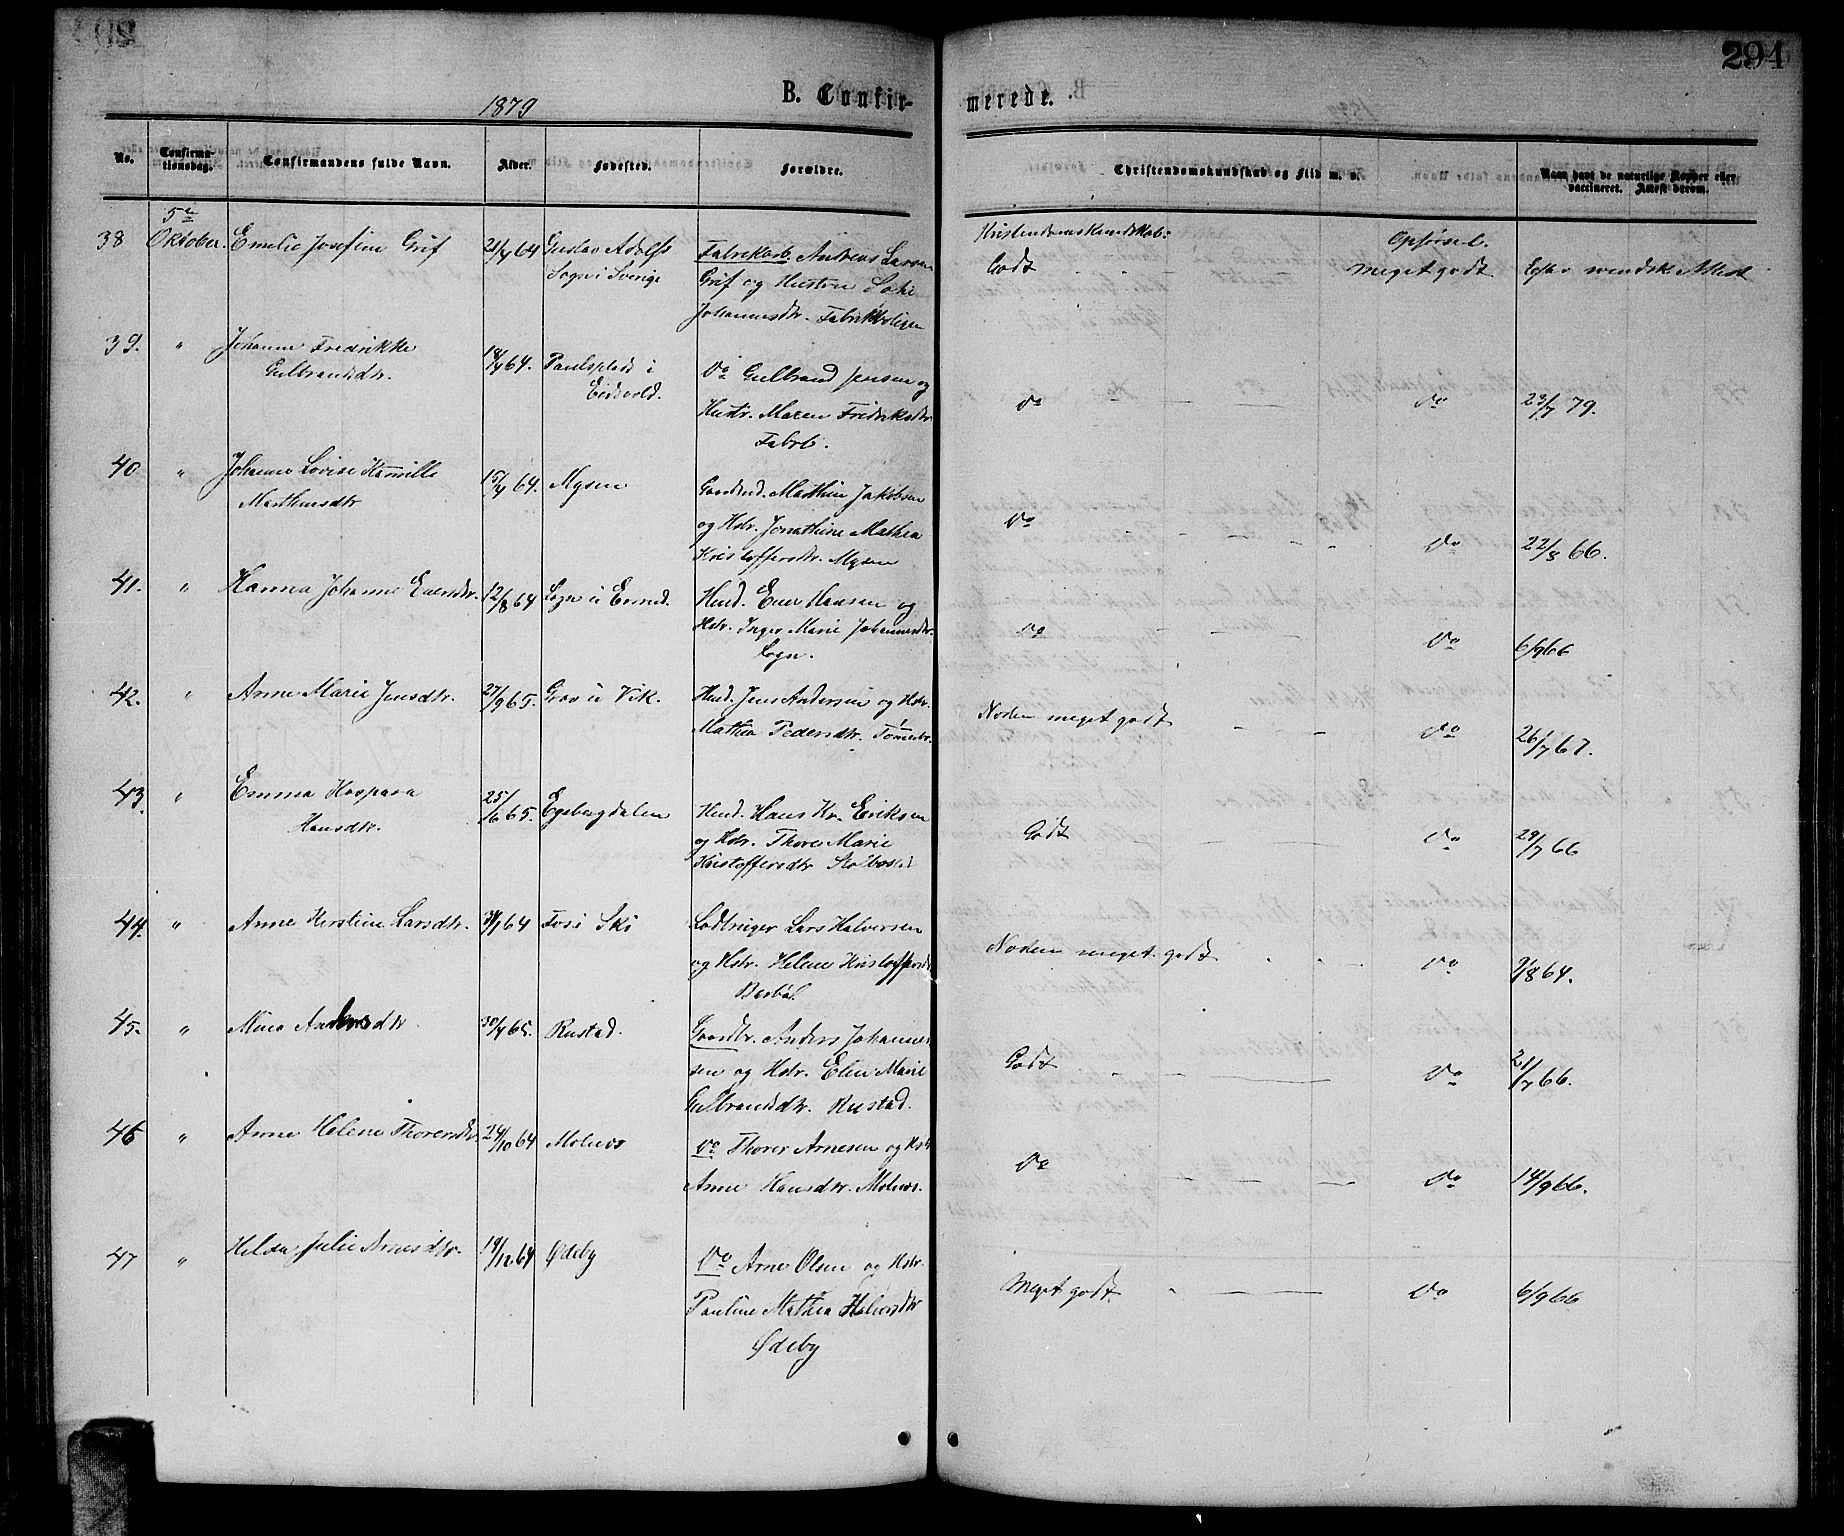 294
1879
B. Confir-
merede.
No.
Confirma-
tionsdag.
Confirmandens fulde Navn.
Alder.
Fødested.
Forældre.
Christendomskundskab og Flid m. v.
Naar havt de naturlige Kopper eller
vaccineret. Attest derom.
5te
38 Oktober. Emelie Josefine Grif 21/4 64 Gustav Adolfs
Sogn i Sverige
Fabrikarb. Andreas Larsen
Grif og Hustru
Johannesdtr. Fabrikboligen
Kristendomskundskab:
Godt
Opførsel.
meget godt
svendsk Attest
39. " Johanne Fredrikke
Gulbrandsdtr.
18/4 64. Paulsplads i
Eidsvold.
Do Gulbrand Jensen og
Hustr. Maren Fredriksdtr.
Fabrb.
do do 23/7 79.
40 " Johanne Lovise Kamille
Marthinsdtr
15/4 64. Mysen
Marthin Jakobsen
og Hstr. Jonathine Mathea
Kristoffersdtr. Mysen
Do do 22/8 66.
41. " Hanna Johanne Evensdtr. 12/8 64
Husd. Even Hansen og
Hstr. Inger Marie Johannesdtr.
Do Do 6/9 66
42. " Anne Marie Jensdtr. 27/9 65. Grav u Vik.
Husd. Jens Andersen og Hstr.
Mathea Pedersdtr.
Noden meget godt do 26/7 67.
43. " Emma Kaspara
Hansdtr.
25/6 65. Egebergdalen
Husd. Hans Kr. Eriksen
og Hstr. Thore Marie
Kristoffersdtr Stolbostad
Godt do 29/7 66
44. " Anne Kerstine Larsdtr. 64 Fos i Ski
Lars Halvorsen
og Hstr. Helene Kristoffersd.
Noden meget godt do 2/8 64.
45. " Mina Andersdtr 30/4 65. Rustad.
Gaardbr. Anders Johannes-
sen og Hstr. Elen Marie
Gulbrandsdtr. Rustad.
Godt do 21/7 66.
46 " Anne Helene Thorersdtr. 24/10 64
Do Thorer Arnesen og Hstr
Anne Hansdtr.
Do do 14/9 66.
47 " Hilda Julie Arnesdtr. 19/12 64 Ødeby
Do Arne Olsen og Hstr.
Pauline Mathea Halvorsdtr
Ødeby
Meget godt. do 6/9 66